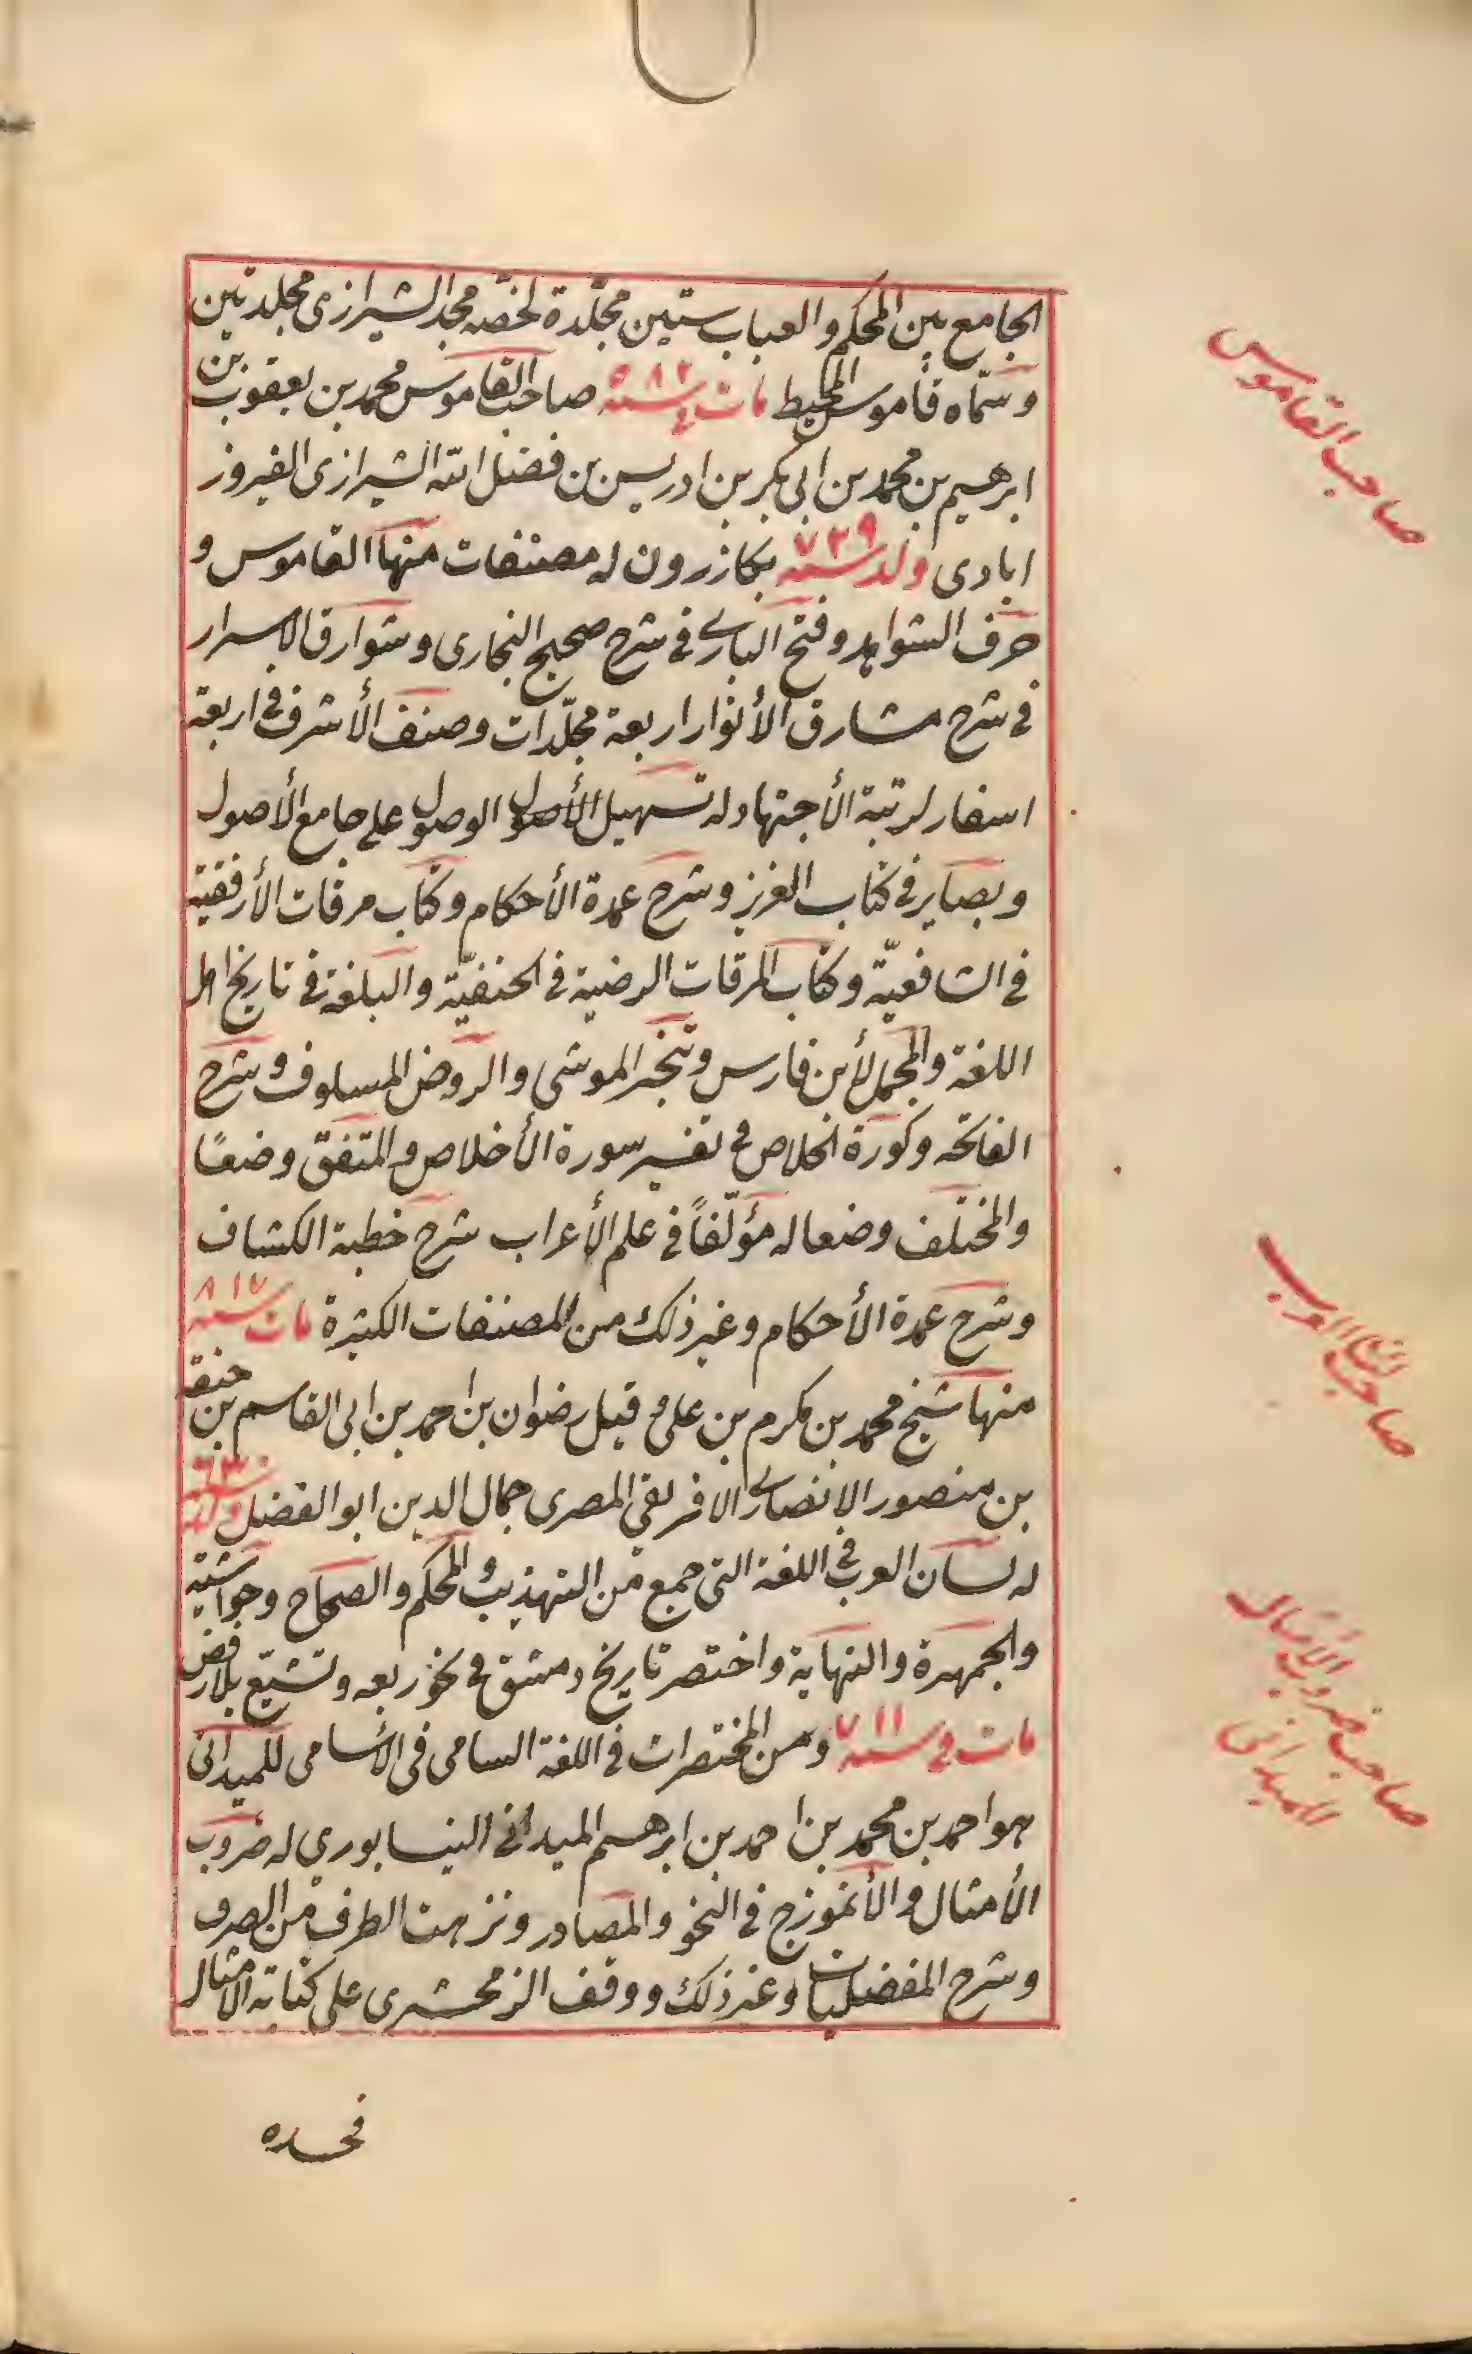 الجامع بين المحكم والعباب ستين مجلّدة لخصّه مجد الشيرازى مجلدتين
وسمّاه قاموس المحيط مات فى سنة صاحب القاموس محمد بن يعقوب بن
ابرهيم بن محمد بن ابى بكر بن ادريس بن فضل الله الشيرازى الفيروز
ابادى ولد سنة ٧٢٩ بكازرون له مصنفات منها القاموس و
حرف الشواهد وفتح البارى فى شرح صحيح البخارى وشوارق الاسرار
فى شرح مشارق الأنوار اربعة مجلّدات وصنف الأشرف فى اربعة
اسفار لرتبة الأجتهاد له تسهيل الأصول الوصول على جامع الأصول
وبصاير فى كتاب العزيز وشرح عمدة الأحكام وكتاب مرقات الأرفقية
فى الشافعيّة وكتاب المرقات الرضية فى الحنفيّة والبلغة فى تاريخ اهل
اللغة والمجمل لأبن فارس وتخبر الموشى والروض المسلوف وشرح
الفاتحه وكورة الخلاص فى تفسير سورة الأخلاص والمتفق وضعًا
والمختلف وضعا له مؤلّفاً فى علم الأعراب شرح خطبة الكشاف
وشرح عمدة الأحكام وغير ذلك من المصنفات الكثيرة مات سنة ٨١٧
منها شيخ محمد بن مكرم بن على و قيل رضوان بن احمد بن ابى القاسم بن حنقه
بن منصور الانصارى الافريقى المصرى جمال الدين ابو الفضل ولد سنة ٦٣٠
له لسان العرب فى اللغة التى جمع من التهذيب والمحكم والصحاح وحواشيه
والجمهرة والنهاية واختصر تاريخ دمشق فى نحو ربعه وتشيّع بلا رفض
مات فى سنة ٧١١ ومن المختصرات فى اللغة السامى فى الأسامى للميدانى
هو احمد بن محمد بن احمد بن ابرهيم الميدانى النيسابورى له ضروب
الأمثال والأنموزج فى النحو والمصادر ونزهت الطرف من الصرف
وشرح المفضليات وغير ذلك ووقف الزمخشرى على كتابه الامثال
فحسده
صاحب القاموس
صاحب لسان العرب
صاحب ضروب الأمثال
للميدانى